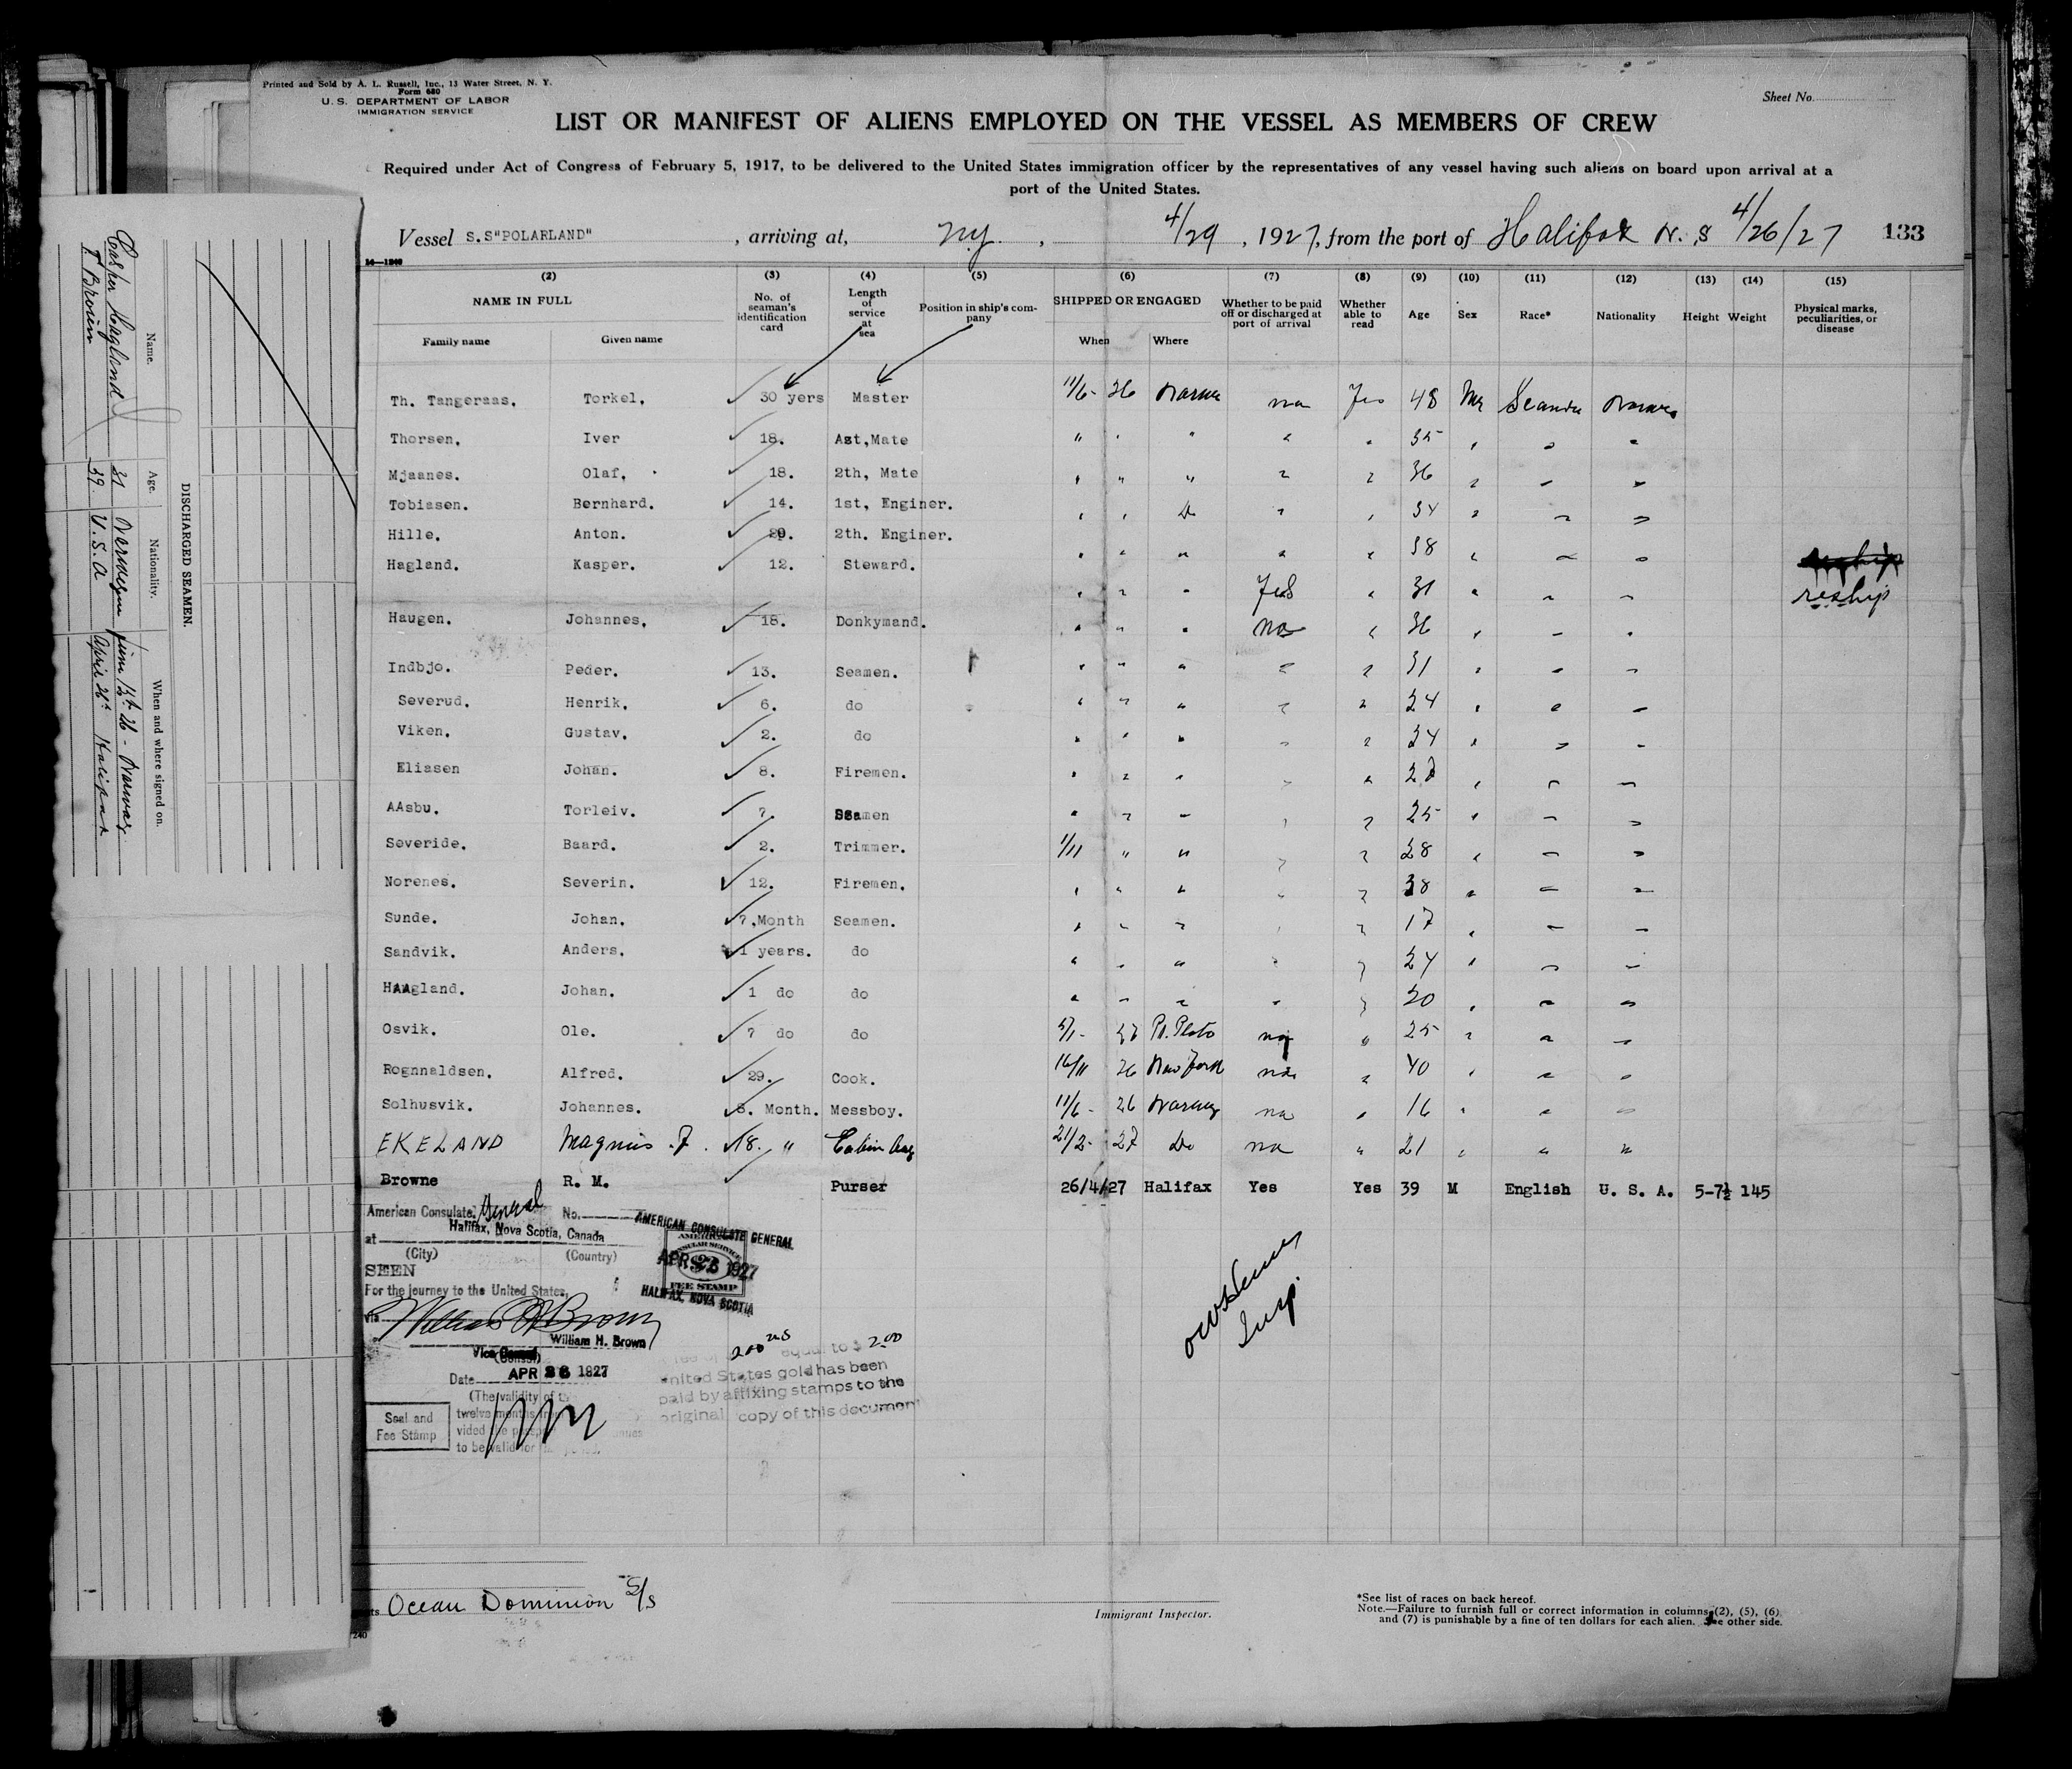 Printed and Sold by A. L. Russell, Inc., 13 Water Street, N. Y.
Form 680
U. S. DEPARTMENT OF LABOR
IMMIGRATION SERVICE
Sheet No.
LIST OR MANIFEST OF ALIENS EMPLOYED ON THE VESSEL AS MEMBERS OF CREW
Required under Act of Congress of February 5, 1917, to be delivered to the United States immigration officer by the representatives of any vessel having such aliens on board upon arrival at a
port of the United States.
Vessel S.S"POLARLAND" , arriving at, N.Y. , 4/29 , 1927, from the port of Halifax N. S 4/26/27 133
14—1240
(2) (3) (4) (5) (6) (7) (8) (9) (10) (11) (12) (13) (14) (15)
NAME IN FULL No. of seaman's identification card Length of service at sea Position in ship's company SHIPPED OR ENGAGED Whether to be paid off or discharged at port of arrival Whether able to read Age Sex Race* Nationality Height Weight Physical marks, peculiarities, or disease
Family name Given name When Where
Th. Tangeraas. Torkel. 30 yers Master 11/6- 26 Norway no Yes 48 Scandi
Thorsen. Iver 18. Ast,Mate " " 35
Mjaanes. Olaf. 18. 2th, Mate " " 36
Tobiasen. Bernhard. 14. 1st, Enginer. " " Do 34
Hille. Anton. 2th. Enginer. " " 38
Hagland. Kasper. 12. Steward. " " Yes 31 reship
Haugen. Johannes. 18. Donkymand. " " no 36
Indbjo. Peder. 13. Seamen. " " 31
Severud. Henrik. 6. do " " 24
Viken. Gustav. 2. do " " 24
Eliasen Johan. 8. Firemen. " "
AAsbu. Torleiv. 7. Seamen " " 25
Severide. Baard. 2. Trimmer. 1/11 " " 28
Norenes. Severin. 12. Firemen. " " 38
Sunde. Johan. 7,Month Seamen. " " 17
Sandvik. Anders. 1 years. do " " 24
HAAgland. Johan. 1 do do " " 20
Osvik. Ole. 7 do do 27 no " 25
Rognnaldsen. Alfred. 29. Cook. 16/11 26 New York no 40
Solhusvik. Johannes. 8. Month. Messboy. 11/6- 26 Norway no 16
EKELAND Magnus . J. 18. " 21/2- 27 Do no " 21 " "
Browne R. M. Purser 26/4/27 Halifax Yes Yes 39 M English U. S. A. 5-7½ 145
American Consulate General No.
at Halifax, Nova Scotia, Canada
(City) (Country)
AMERICAN CONSULATE GENERAL
FEE STAMP
HALIFAX, NOVA SCOTIA
SEEN
For the journey to the United States,
via
William H. Brown
Vice
(Consul)
Date APR 26 1927
(The validity of
twelve months
to be valid for
Seal and
Fee Stamp
equal to $ 2.00
United States gold has been
paid by affixing stamps to the
original copy of this document
Insp.
Ocean Dominion S/S
Immigrant Inspector.
*See list of races on back hereof.
Note.—Failure to furnish full or correct information in columns (2), (5), (6)
and (7) is punishable by a fine of ten dollars for each alien. See other side.
DISCHARGED SEAMEN.
Name. Age. Nationality. When and where signed on.
Casper Hagland 31 Norwegian June 12th 26 - Norway
T Brown 39. U. S. A April 26th Halifax